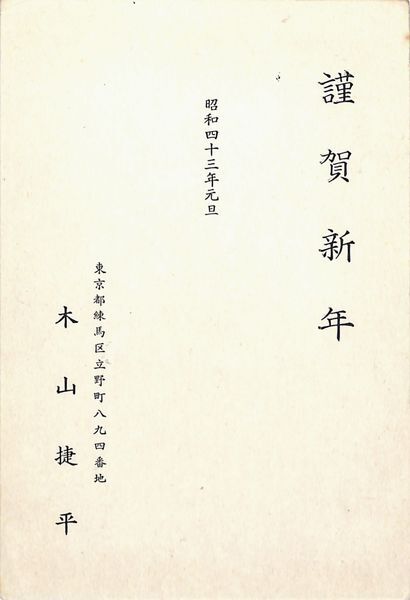 謹賀新年
昭和四十三年元旦
東京都練馬区立野町八九四番地
木山捷平